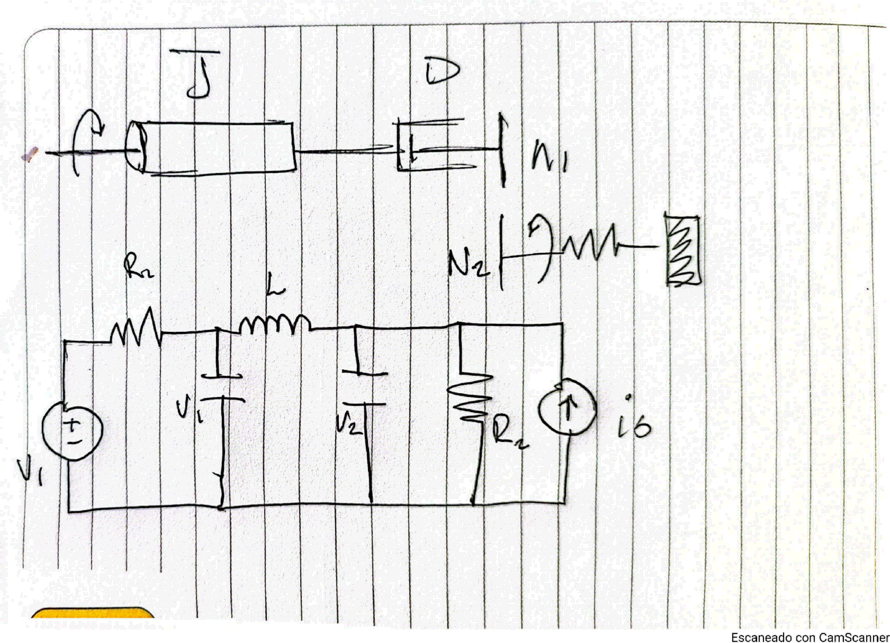 J D
n1
N2
R2 L
V1 V1 V2 R2 i6
Escaneado con CamScanner